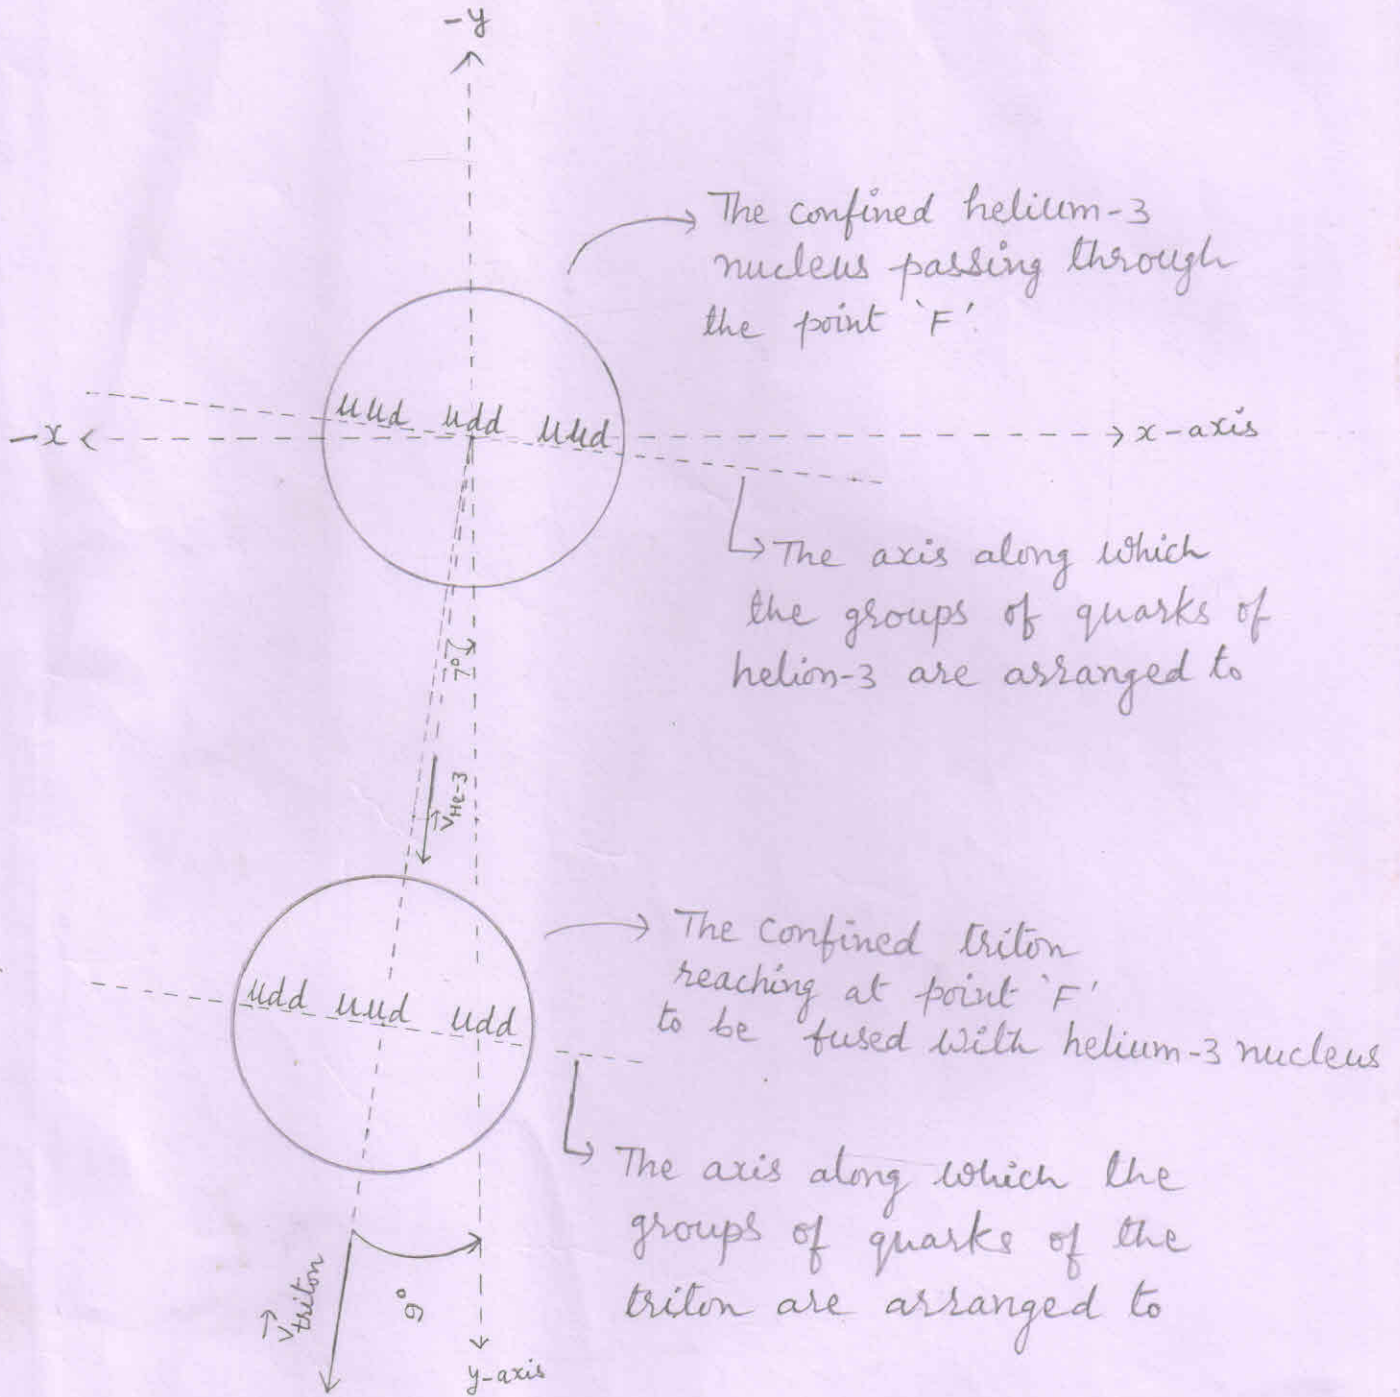 -y
The confined helium-3
nucleus passing through
the point 'F'.
uud udd uud
-x
x-axis
The axis along which
the groups of quarks of
helion-3 are arranged to
7°
V He-3
The confined triton
reaching at point 'F'
to be fused with helium-3 nucleus
udd uud udd
The axis along which the
groups of quarks of the
triton are arranged to
V triton
9°
y-axis